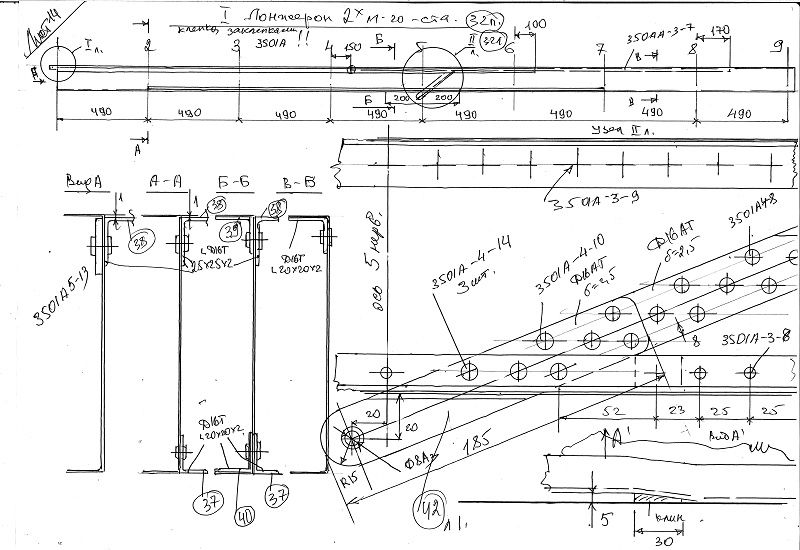 Лист-14
I Лонжерон 2х м-го -ста. 32п.
клепка заклепками !!
3501А
I л.
2
3
4
150
Б
5
II л.
32л
6
100
3501АА-3-7
7
В
8
170
9
А
Б
200
200
В
490
490
490
490
490
490
490
490
А
Узел II л.
Вид А
А-А
Б-Б
В-Б
1
1
38
38
39
38
Д16Т
L25х25х2
Д16Т
L20х20х2
3501А5-13
Д16Т
L20х20х2
37
40
37
3501А-3-9
ось 5 нерв.
3501А-4-14
3 шт.
3501А-4-10
Д16АТ
δ=2,5
Д16АТ
δ=2,5
3501А-3-8
8
20
20
52
23
25
25
R15
Ф8А3
185
42
А'
Вид А'
5
клин
30